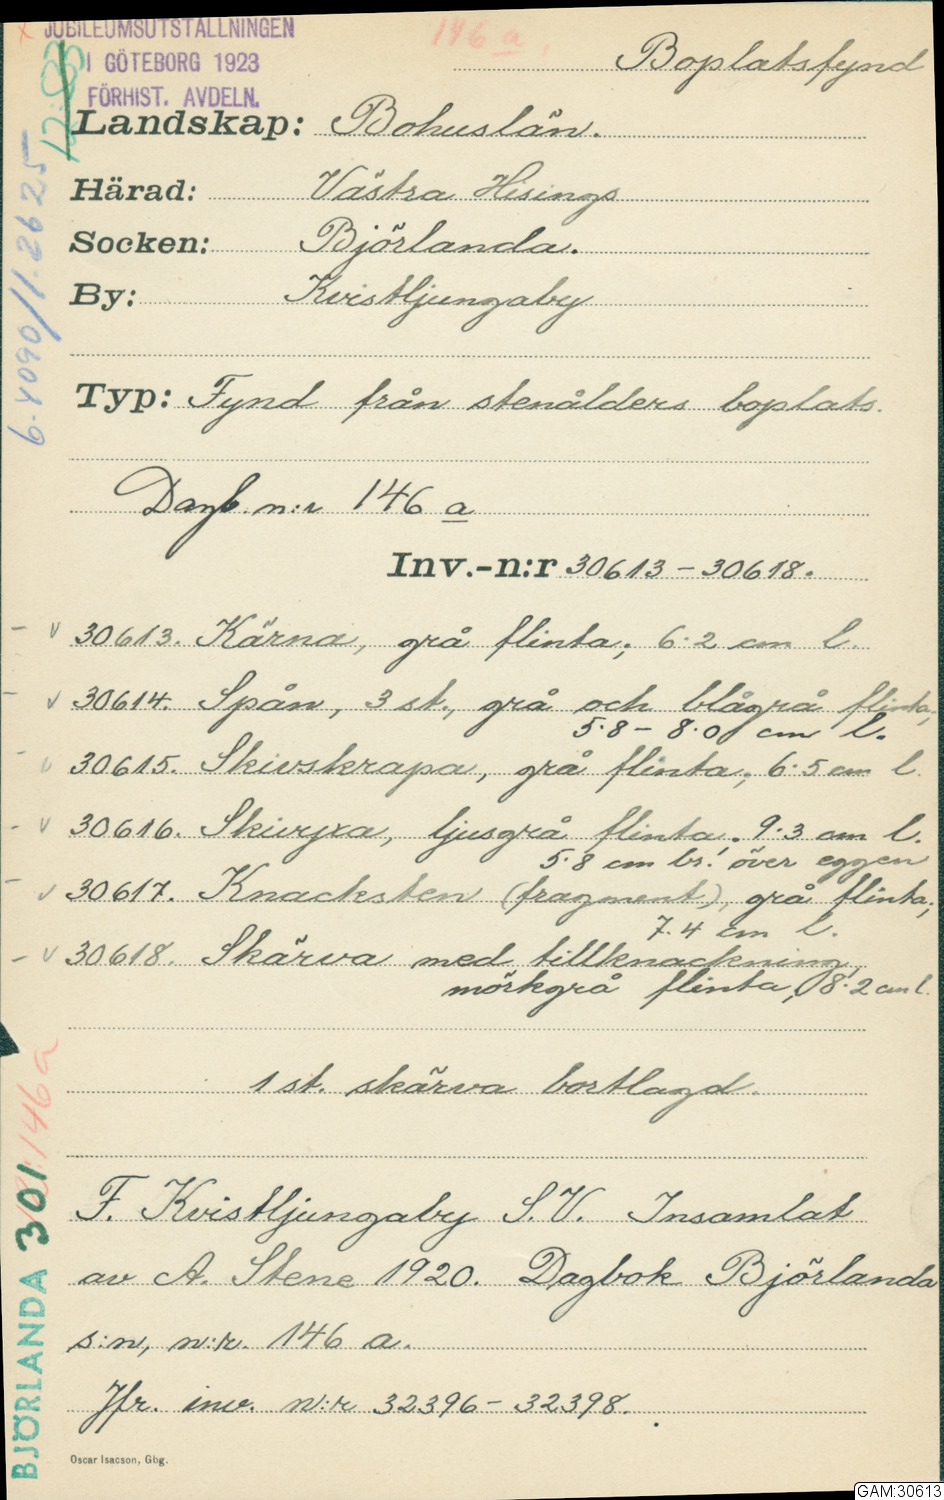 JUBILEUMSUTSTÄLLNINGEN
I GÖTEBORG 1923
FÖRHIST. AVDELN.
146 a.
Boplatsfynd
Landskap: Bohuslän.
Härad: Västra Hisings
Socken: Björlanda.
By: Kvistljungaby
Typ: Fynd från stenålders boplats.
Dagb. n:r 146 a
Inv.-n:r 30613 – 30618.
– v 30613. Kärna, grå flinta; 6·2 cm l.
– v 30614. Spån, 3 st., grå och blågrå flinta;
5·8 – 8·0 cm l.
– v 30615. Skivskrapa, grå flinta; 6·5 cm l.
– v 30616. Skivyxa, ljusgrå flinta. 9·3 cm l.
5·8 cm br. över eggen
– v 30617. Knacksten (fragment), grå flinta;
7.4 cm l.
– v 30618. Skärva med tillknackning,
mörkgrå flinta, 8·2 cm l.
1 st. skärva bortlagd.
F. Kvistljungaby S.V. Insamlat
av A. Stene 1920. Dagbok Björlanda
s:n, n:r. 146 a.
Jfr. inv. n:r 32396 – 32398.
Oscar Isacson, Gbg.
6·4090/11·2625
146 a
BJÖRLANDA 301
GAM:30613